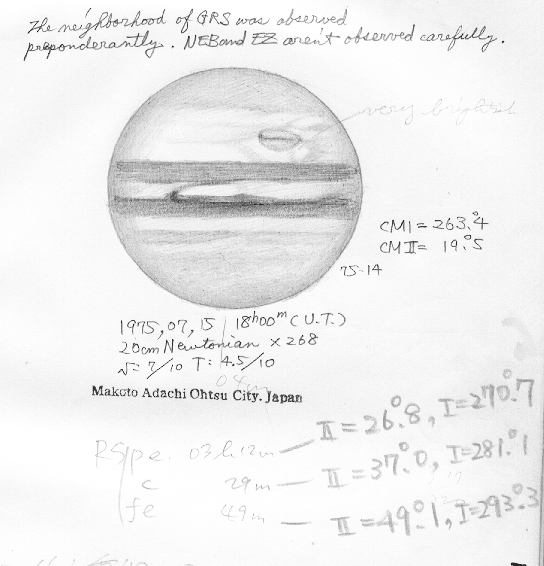 The neighborhood of GRS was observed
preponderantly. NEB and EZ aren't observed carefully.
very brightish
CMI = 263.°4
CMII = 19.°5
75-14
1975, 07, 15 18h00m (U.T.)
20cm Newtonian × 268
7/10 T: 4.5/10
Makoto Adachi Ohtsu City. Japan
RS pe. 03h12m — II = 26.°8, I = 270.°7
c 29m — II = 37.°0, I = 281.°1
fe 49m — II = 49.°1, I = 293.°3